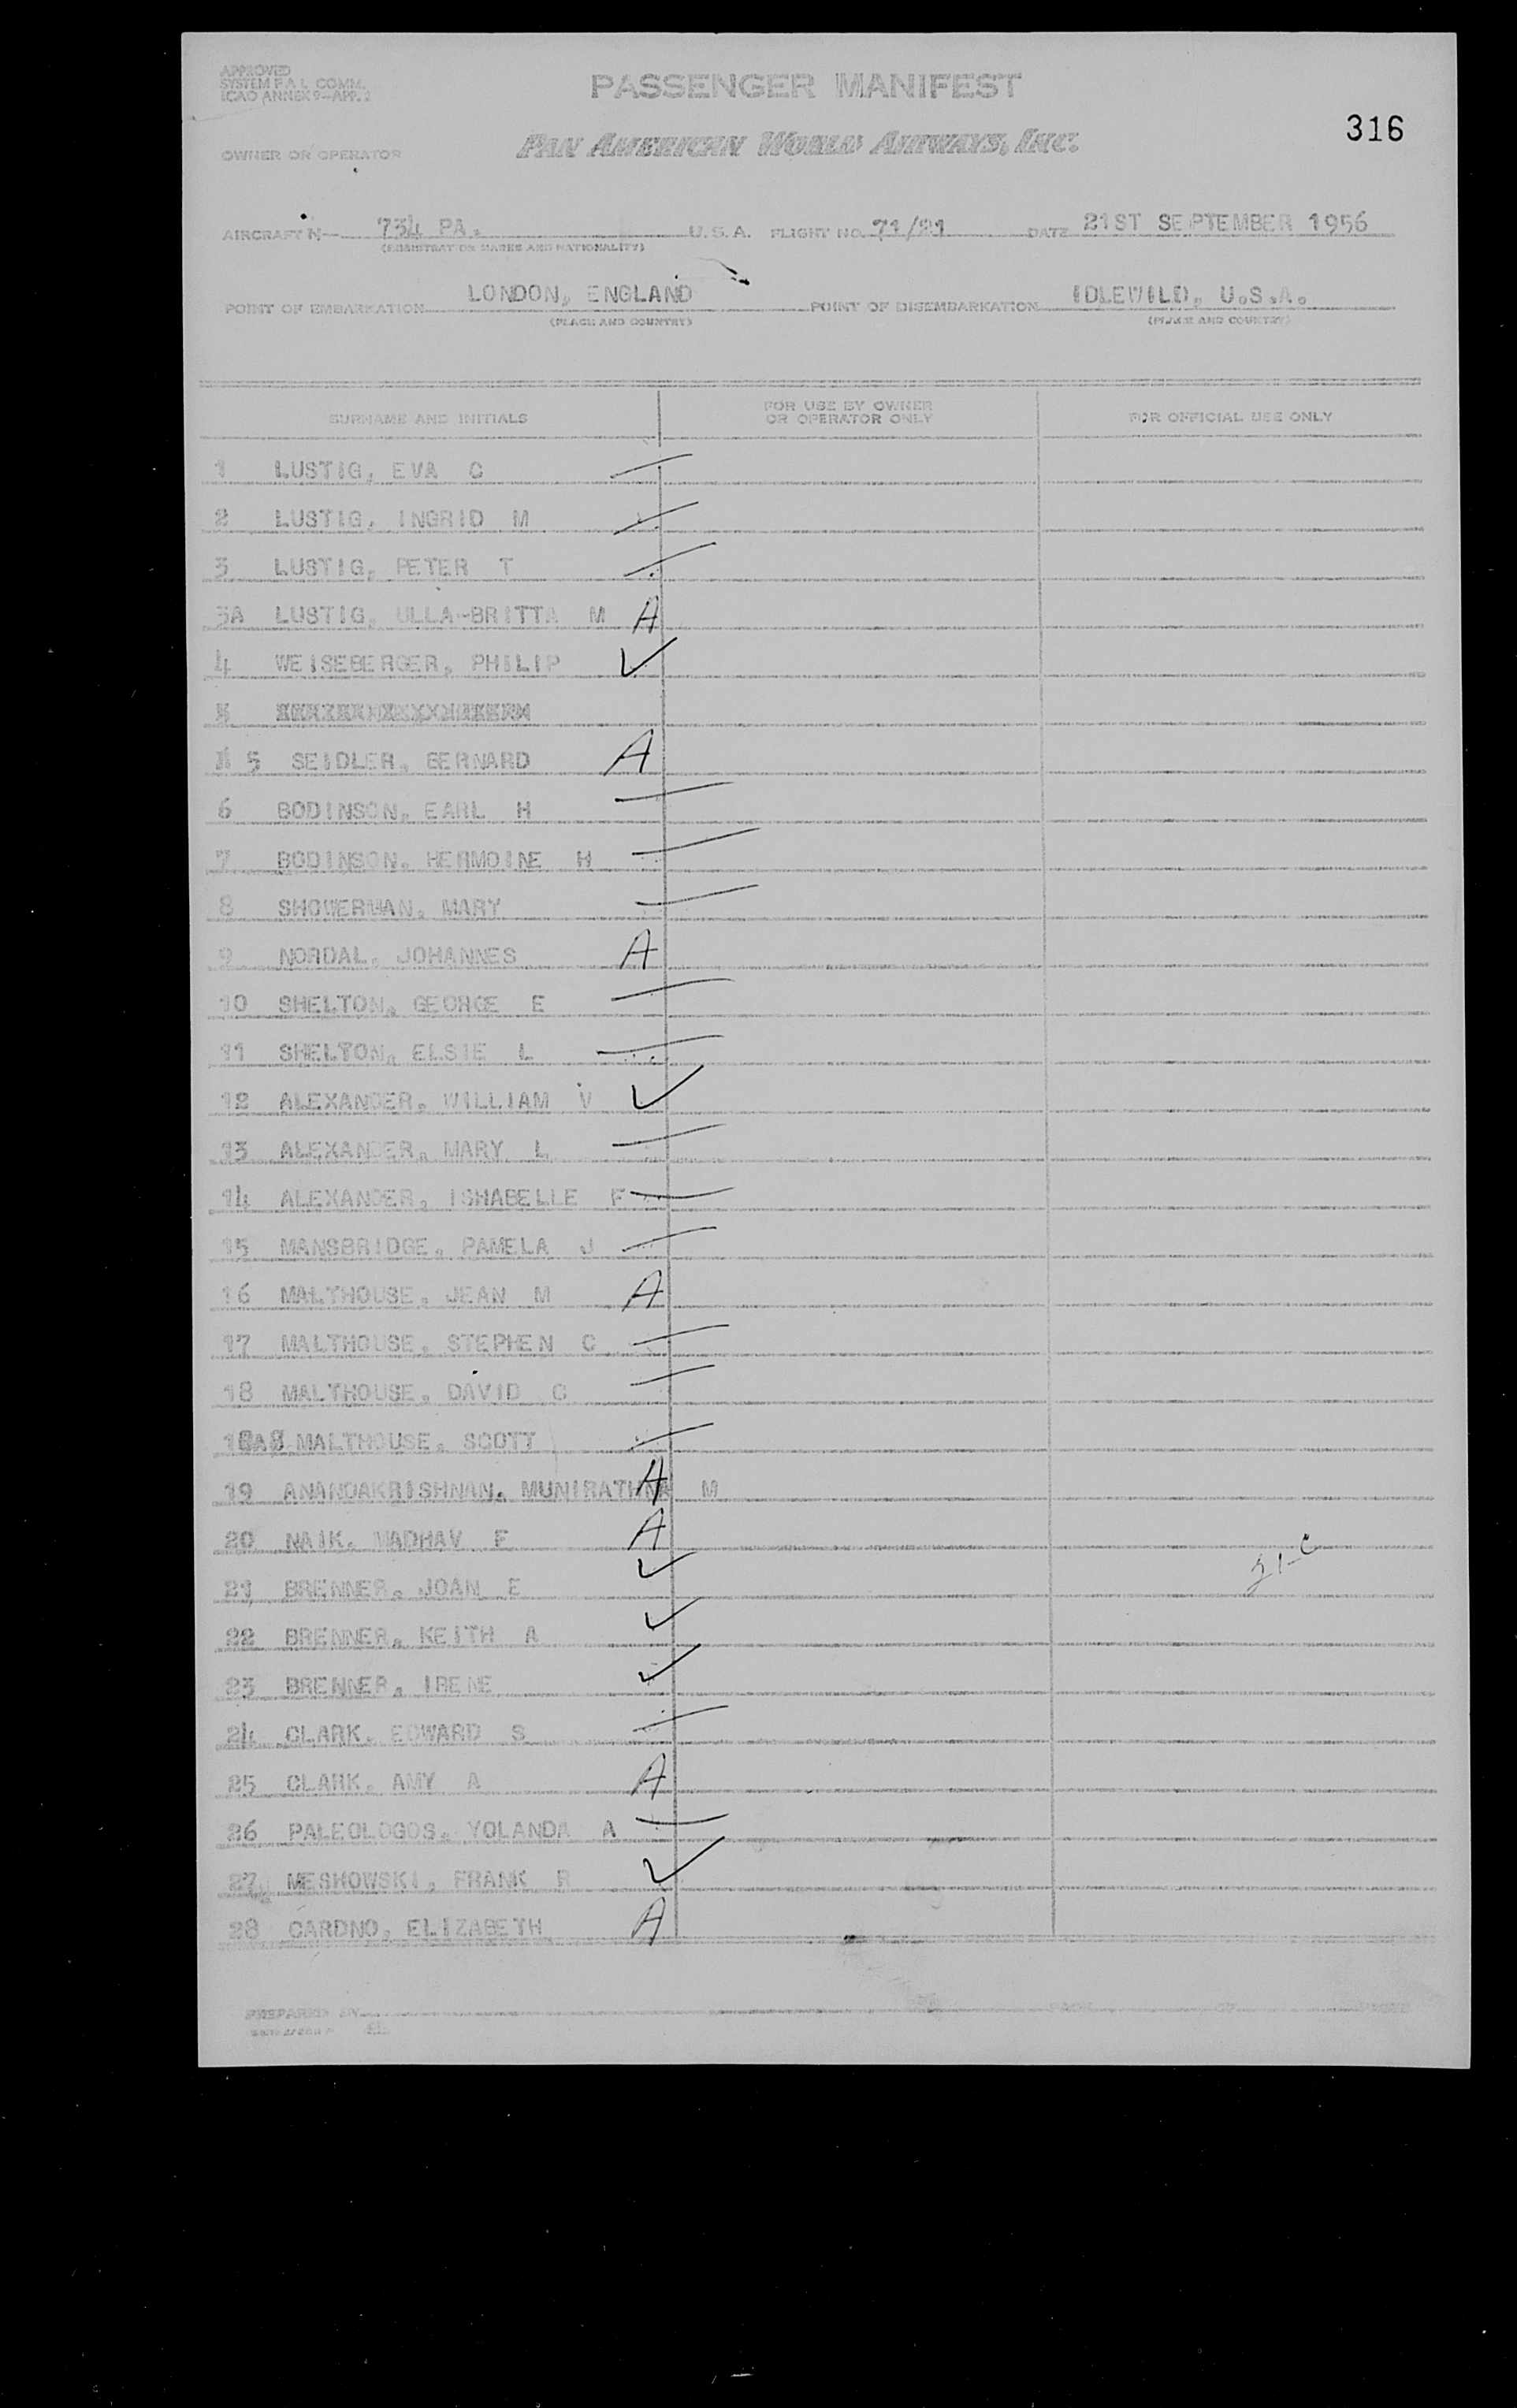 APPROVED
SYSTEM F A L COMM.
ICAO ANNEX 9-APP. 2
PASSENGER MANIFEST
316
OWNER OR OPERATOR
PAN AMERICAN WORLD AIRWAYS, INC.
AIRCRAFT N- 734 PA. U.S.A. FLIGHT NO. 71/21 DATE 21ST SEPTEMBER 1956
(REGISTRATION MARKS AND NATIONALITY)
POINT OF EMBARKATION LONDON, ENGLAND POINT OF DISEMBARKATION IDLEWILD, U.S.A.
(PLACE AND COUNTRY) (PLACE AND COUNTRY)
SURNAME AND INITIALS FOR USE BY OWNER OR OPERATOR ONLY FOR OFFICIAL USE ONLY
1 LUSTIG, EVA C
2 LUSTIG, INGRID M
3 LUSTIG, PETER T
3A LUSTIG, ULLA-BRITTA M A
4 WEISEBERGER, PHILIP ✓
5 SEIDLER, BERNARD A
6 BODINSON, EARL H
7 BODINSON, HERMOINE H
8 SHOWERMAN, MARY
9 NORDAL, JOHANNES A
10 SHELTON, GEORGE E
11 SHELTON, ELSIE L
12 ALEXANDER, WILLIAM V ✓
13 ALEXANDER, MARY L
14 ALEXANDER, ISHABELLE F
15 MANSBRIDGE, PAMELA J
16 MALTHOUSE, JEAN M A
17 MALTHOUSE, STEPHEN C
18 MALTHOUSE, DAVID G
MALTHOUSE, SCOTT
19 ANANDAKRISHNAN, MUNIRATHNA M A
20 NAIK, MADHAV E A
21 BRENNER, JOAN E ✓
22 BRENNER, KEITH A ✓
23 BRENNER, IRENE ✓
24 CLARK, EDWARD S
25 CLARK, AMY A A
26 PALEOLOGOS, YOLANDA A
27 MESHOWSKI, FRANK R ✓
28 CARDNO, ELIZABETH A
PREPARED BY